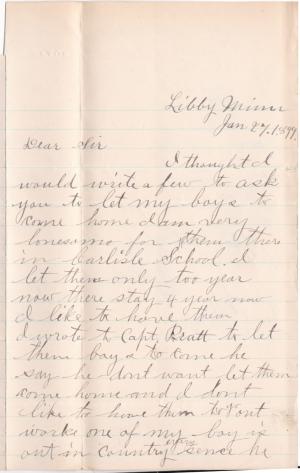 Libby Minn
Jan 27, 1899
Dear Sir
I thought I
would write a few to ask
you to let my boys to
come home I am very
lonesome for them there
in Carlisle School. I
let them only too year
now there stay 4 year now
I like to have them
I wrote to Capt. Pratt to let
them boys to come he
say he dont want let them
come home and I dont
like to have them out
works one of my boy is
out in country since he